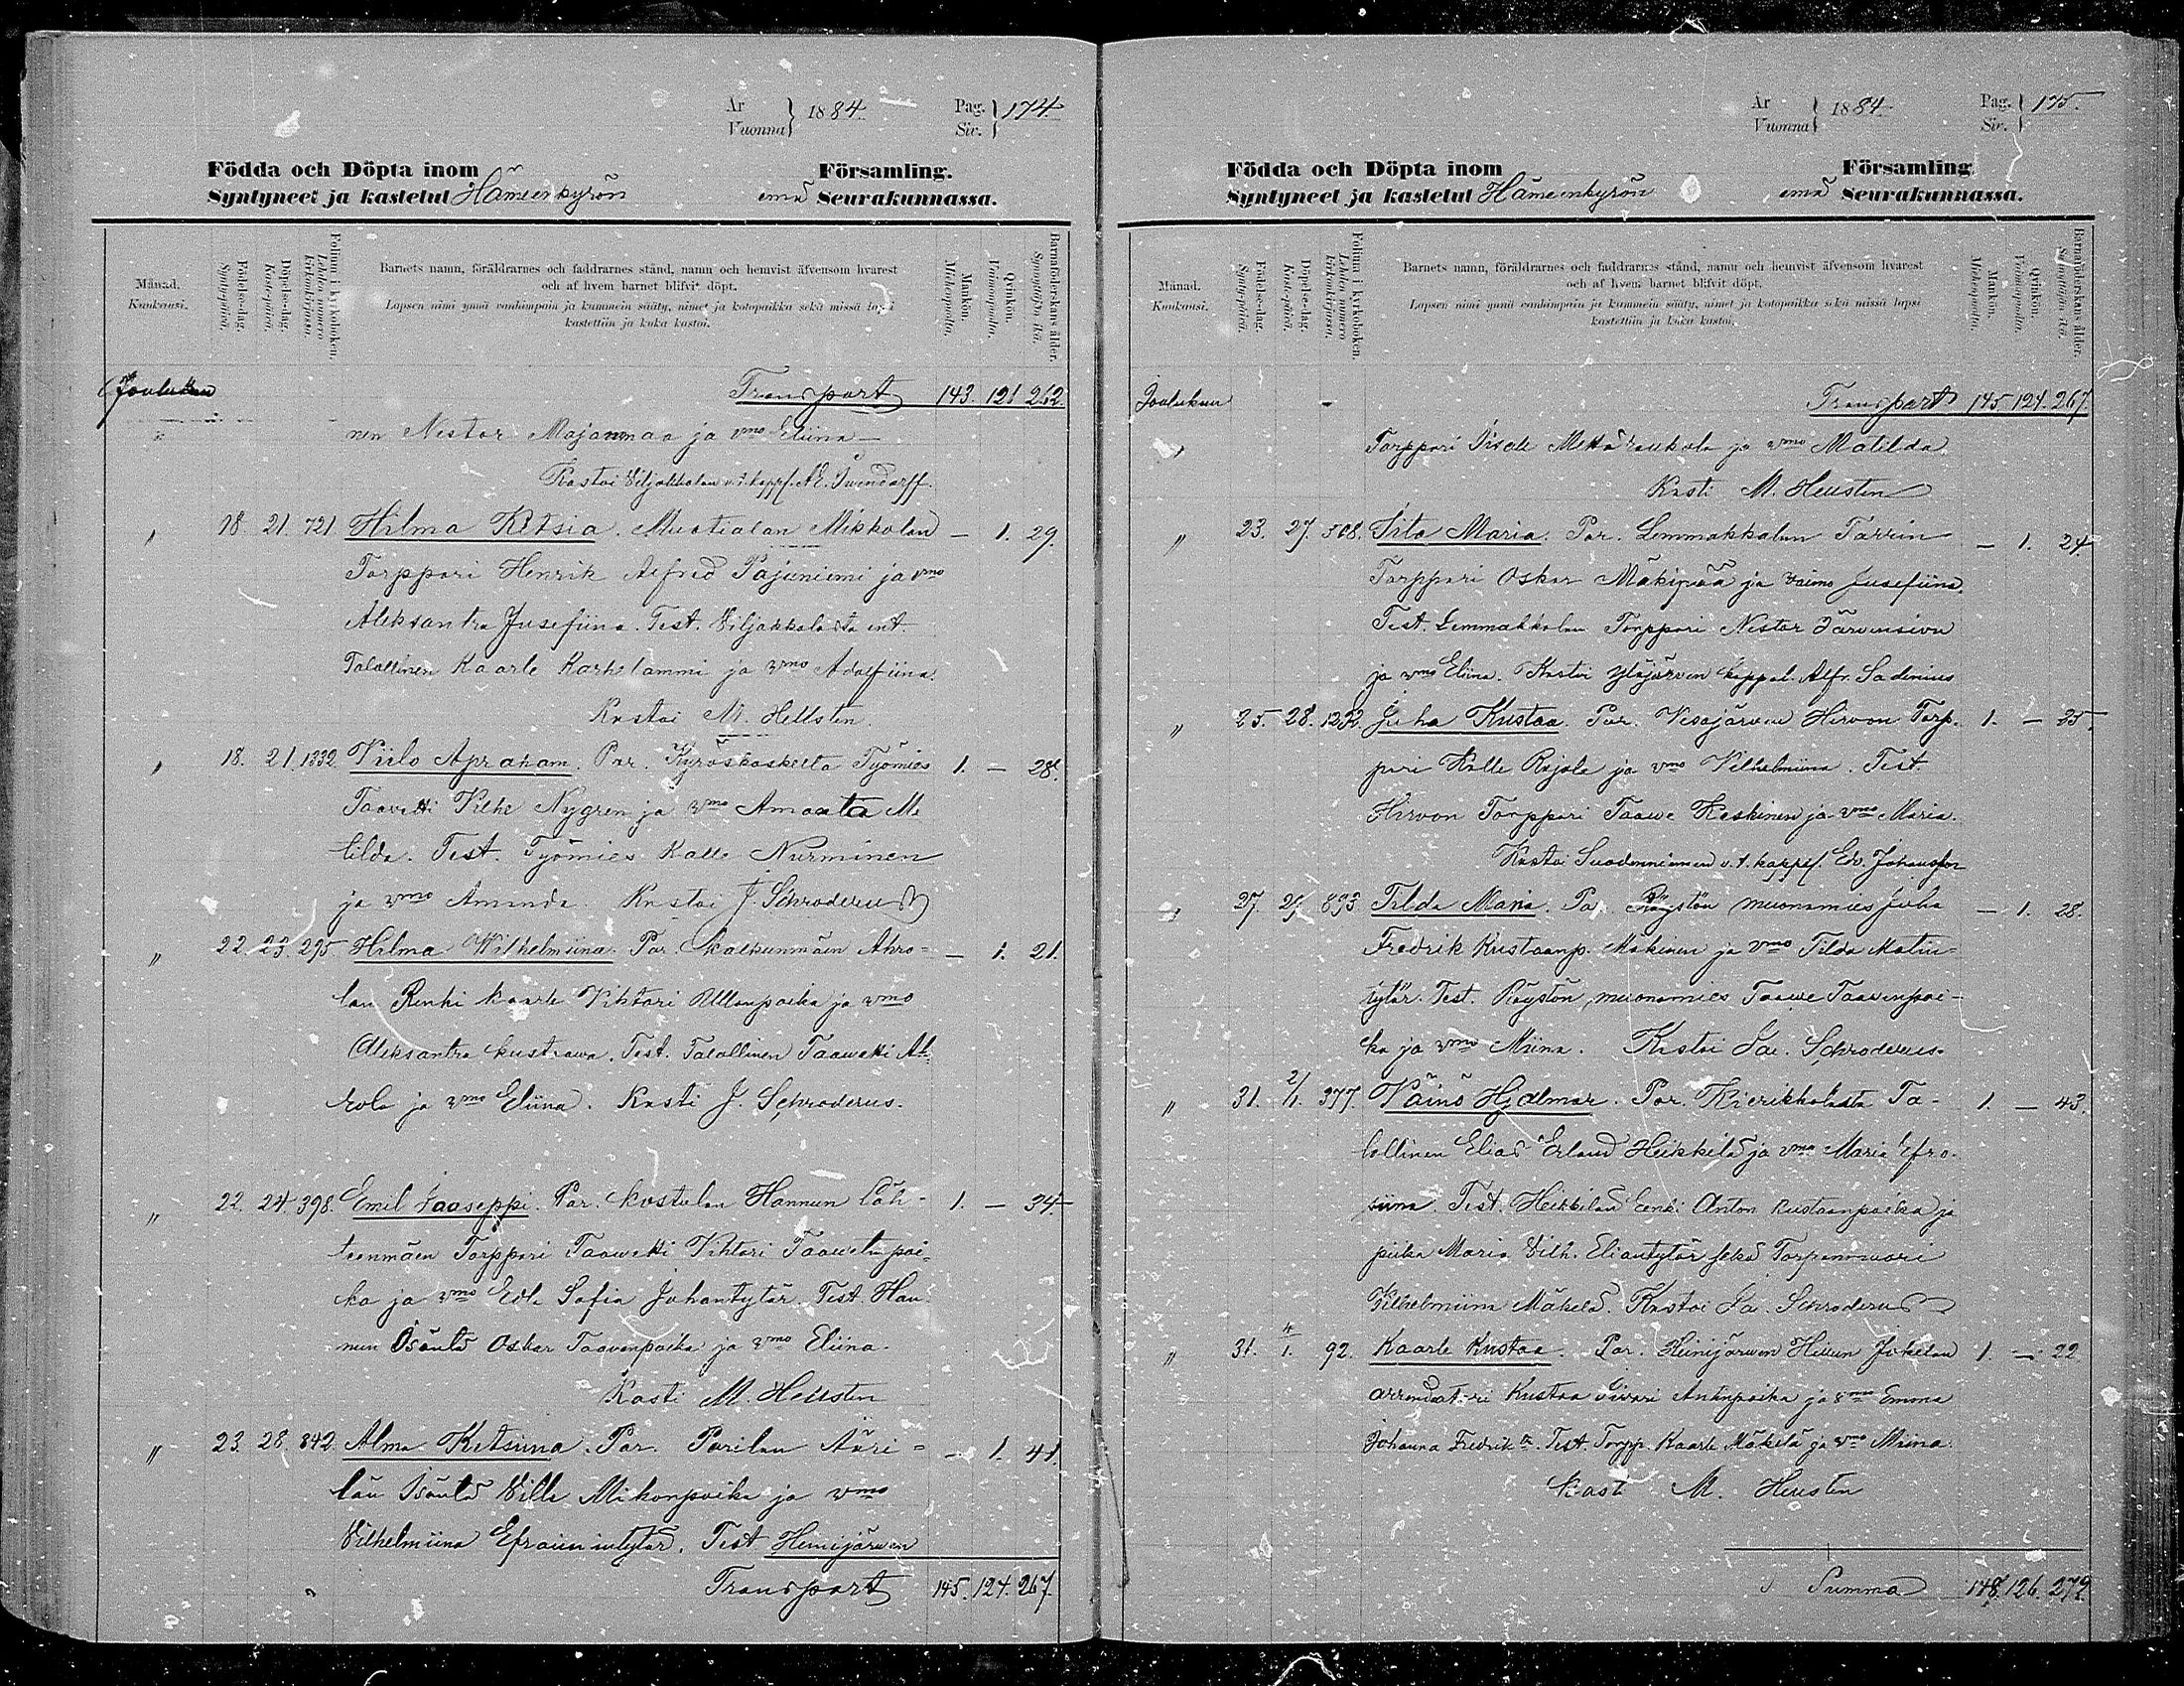 År
Vuonna } 1884.
Pag.
Siv. } 174.
Födda och Döpta inom Församling.
Syntyneet ja kastetut Hämeenkyrön emä Seurakunnassa.
Månad.
Kuukausi.
Födelsedag.
Syntypäivä.
Döpelsedag.
Kastepäivä.
Folium i kyrkoboken.
Lehden numero kirkonkirjassa.
Barnets namn, föräldrarnes och faddrarnes stånd, namn och hemvist äfvensom hvarest
och af hvem barnet blifvit döpt.
Lapsen nimi ynnä vanhimpain ja kummein sääty, nimet ja kotopaikka sekä missä lapsi
kastettiin ja kuka kastoi.
Mankön.
Miehenpuolta.
Qvinkön.
Vaimonpuolta.
Barnaföderskans ålder.
Synnyttäjän ikä.
Joulukuu Transport 143. 121 262.
nen Nestor Majanmaa ja vmo Eliina
Kastoi Viljakkalan v.t. kappl.
18. 21. 721 Hilma Ketsia. Muotialan Mikkolan — 1. 29.
Torppari Henrik Alfred Pajuniemi ja vmo
Aleksantra Jusefiina. Test. Viljakkalasta ent.
Talollinen Kaarle Karhelammi ja vmo Adolfiina.
Kastoi M. Hellsten.
18. 21. 1332. Viilo Apraham. Par. Kyröskoskelta Työmies 1. — 28.
Taavetti Vilhe Nygren ja vmo Amaata Ma
tilda. Test. Työmies Kalle Nurminen
ja vmo Amanda. Kastoi J. Schroderus
" 22. 23. 295 Hilma Wilhelmiina. Par. Kalkunmäen Ahro= — 1. 21.
lan Renki Kaarle Vihtori Ollanpoika ja vmo
Aleksantra Kustaava. Test. Talollinen Taavetti Ah
rola ja vmo Eliina. Kasti J. Schroderus.
" 22. 24. 398. Emil Jooseppi. Par. Kostulan Hannun Läh- 1. — 34.
teenmäen Torppari Taawetti Vihtori Taawetinpoi-
ka ja vmo Edla Sofia Juhantytär. Test. Han
nun Isäntä Oskar Taavenpoika ja vmo Eliina.
Kasti M. Hellsten
" 23. 28. 842. Alma Ketsiina. Par. Parilan Äöri= — 1. 41.
län Isäntä Ville Mikonpoika ja vmo
Vilhelmiina Efraimintytär. Test Heinijärven
Transport 145. 124. 267.
År
Vuonna } 1884.
Pag.
Siv. } 175.
Födda och Döpta inom Församling
Syntyneet ja kastetut Hämeenkyrön emä Seurakunnassa.
Månad.
Kuukausi.
Födelsedag.
Syntypäivä.
Döpelsedag.
Kastepäivä.
Folium i kyrkoboken.
Lehden numero kirkonkirjassa.
Barnets namn, föräldrarnes och faddrarnes stånd, namn och hemvist äfvensom hvarest
och af hvem barnet blifvit döpt.
Lapsen nimi ynnä vanhimpain ja kummein sääty, nimet ja kotopaikka sekä missä lapsi
kastettiin ja kuka kastoi.
Mankön.
Miehenpuolta.
Qvinkön.
Vaimonpuolta.
Barnaföderskans ålder.
Synnyttäjän ikä.
Joulukuu Transport 145 124. 267.
Torppari ja vmo Matilda
Kasti M. Hellsten
" 23. 27. 508. Iita Maria. Par. Lemmakkalan Tarrin — 1. 24
Torppari Oskar Mäkipää ja vaimo Jusefiina.
Test. Lemmakkalan Torppari Nestor Järvensivu
ja vmo Eliina. Kastoi Ylöjärven kappal. Alfr. Sadenius
" 25. 28. 1232. Juha Kustaa. Par. Vesajärven Hirvon Torp- 1. — 25.
pari Kalle Rajala ja vmo Vilhelmiina. Test.
Hirvon Torppari Taave Keskinen ja vmo Maria.
Kastoi Suodenniemen v.t. kappl. Ed. Johansson
27. 29. 893 Tilda Maria. Par. Röystön muonamies Juha — 1. 28.
Fredrik Kustaanp. Mäkinen ja vmo Tilda Matin-
tytär. Test. Röystön muonamies Taawe Taavenpoi-
ka ja vmo Miina. Kastoi Jae. Schroderus.
" 31. 2/1. 377. Väinö Hjalmar. Par. Kierikkalasta Ta- 1. — 43.
lollinen Elias Erland Heikkilä ja vmo Maria Efro-
siina. Test. Heikkilän renki Anton Kustaanpoika ja
piika Maria Vilh. Eliantytär sekä Torpanmuori
Vilhelmiina Mäkelä. Kastoi Ja. Schroderus
" 31. 4/1. 92. Kaarle Kustaa. Par. Heinijärven Hiiun Jokelan 1. — 22
arrendatori Kustaa Iivari Antinpoika ja vmo Emma
Johanna Fredrik tr. Test. Torpp. Kaarle Mäkelä ja vmo Miina.
Kasti M. Hellsten
Summa 148. 126. 272.